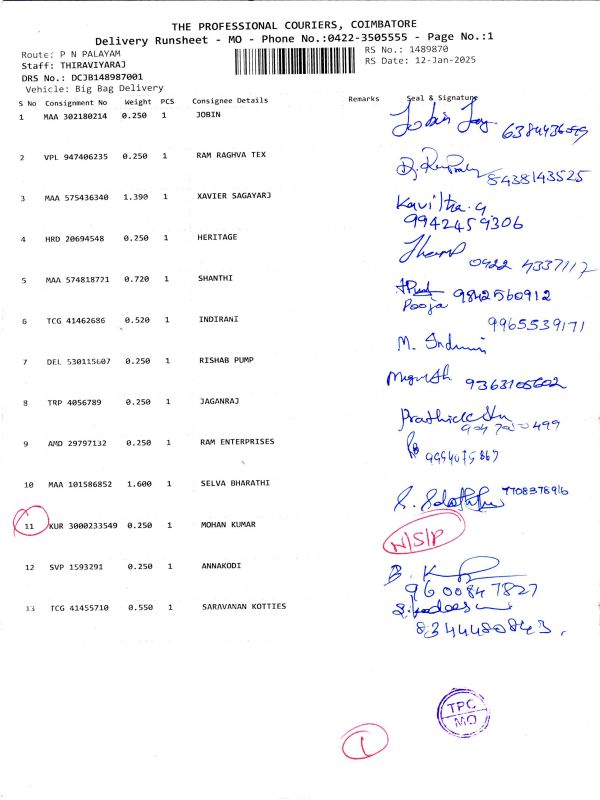 THE PROFESSIONAL COURIERS, COIMBATORE
Delivery Runsheet - MO - Phone No.:0422-3505555 - Page No.:1
Route: P N PALAYAM
RS No.: 1489870
Staff: THIRAVIYARAJ
RS Date: 12-Jan-2025
DRS No.: DCJB148987001
Vehicle: Big Bag Delivery
S No Consignment No Weight PCS Consignee Details Remarks Seal & Signature
1 MAA 302180214 0.250 1 JOBIN Jobin Joy
2 VPL 947406235 0.250 1 RAM RAGHVA TEX 8438143525
3 MAA 575436340 1.390 1 XAVIER SAGAYARJ Kavitha.G
9942459306
4 HRD 20694548 0.250 1 HERITAGE
0422 4337117
5 MAA 574818721 0.720 1 SHANTHI
Pooja 9842560912
6 TCG 41462686 0.520 1 INDIRANI 9965539171
7 DEL 530115607 0.250 1 RISHAB PUMP 9363105602
8 TRP 4056789 0.250 1 JAGANRAJ
9 AMD 29797132 0.250 1 RAM ENTERPRISES
10 MAA 101586852 1.600 1 SELVA BHARATHI 7708378916
11 KUR 3000233549 0.250 1 MOHAN KUMAR N/S/P
12 SVP 1593291 0.250 1 ANNAKODI
9600847827
13 TCG 41455710 0.550 1 SARAVANAN KOTTIES
8344480843.
TPC
MO
1